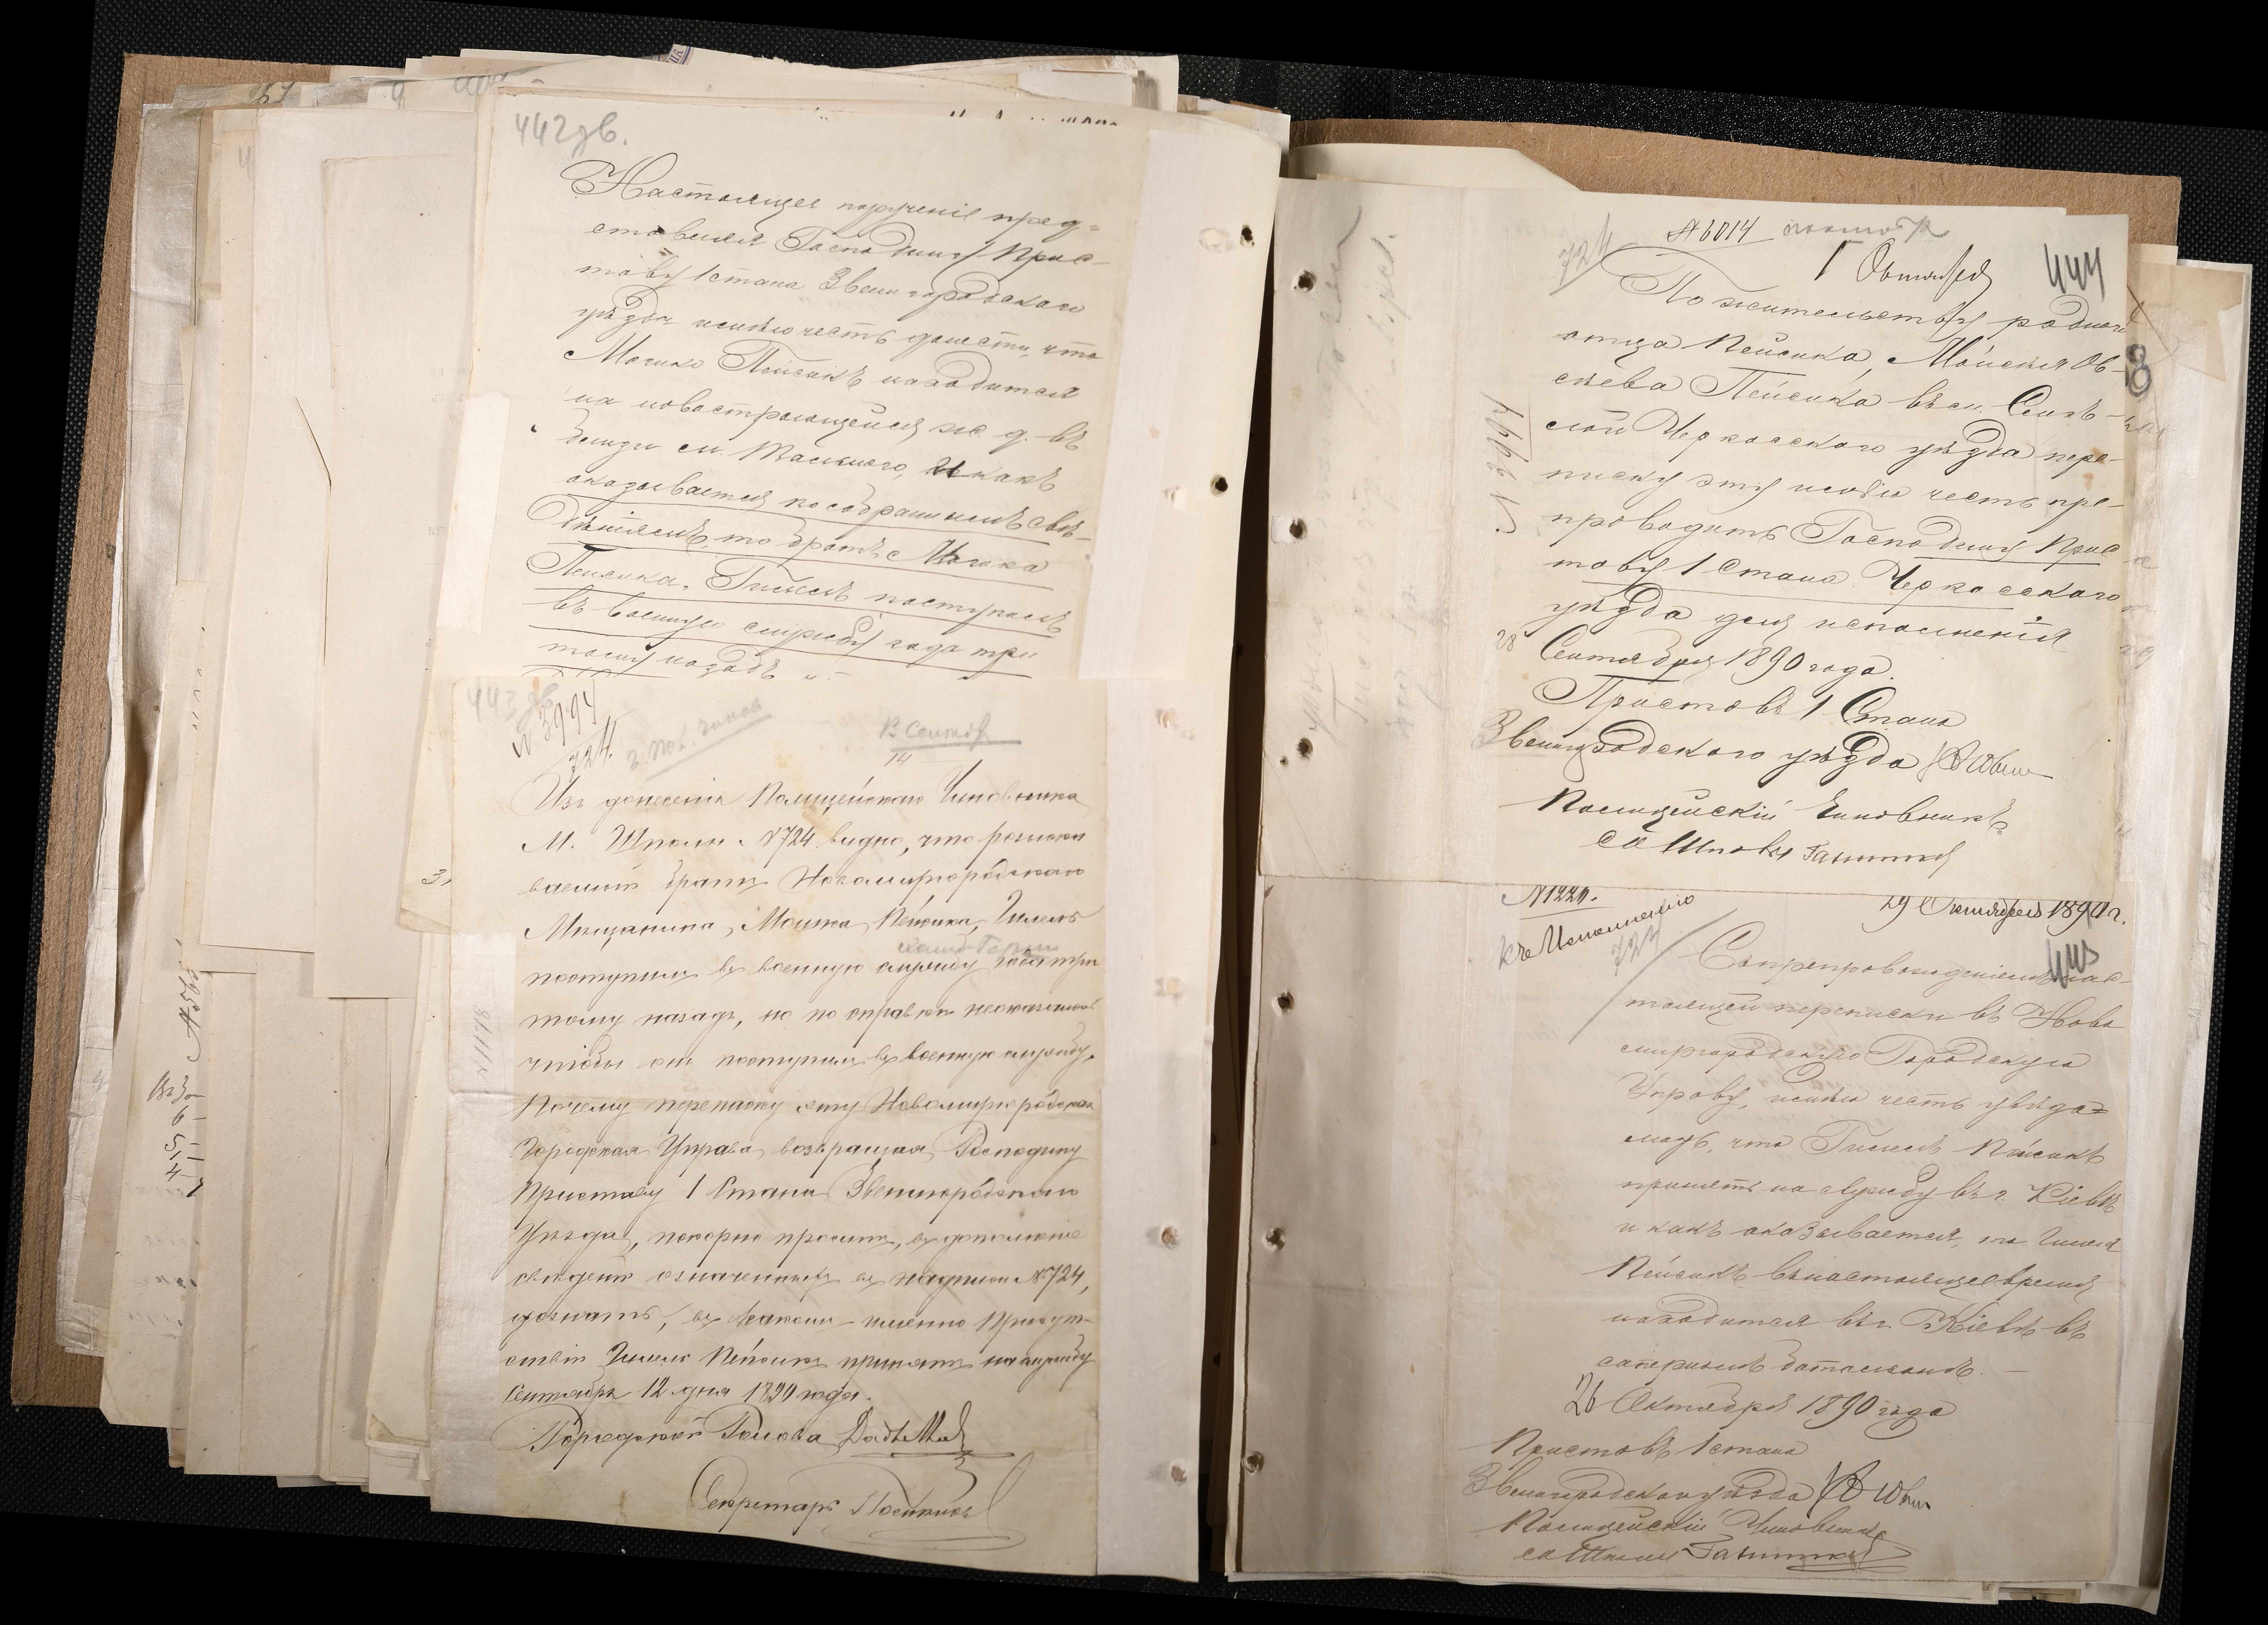 442 зв.
Настоящее порученіе пред-
ставляя Господину Прис-
таву 1 стана Звенигородскаго
уѣзда имѣю честь донести, что
Мошко Пейсикъ находится
на новостроющейся ж. д. въ
близи м. Тального, и какъ
оказывается по собраннымъ свѣ-
дѣніямъ, то братъ Мошка
Пейсика, Гилель поступилъ
въ военную службу года три
тому назадъ
443 зв.
№ 3994
724.
13 Сентяб
14
Изъ донесенія Полицейскаго Чиновника
М. Шполы № 724 видно, что розыски
ваемый братъ Новомиргородскаго
Мещанина, Мошка Пейсика, Гилель
поступилъ въ военную службу года три
тому назадъ, но по справкѣ неоказалось
чтобы онъ поступилъ въ военную службу,
Почему переписку эту Новомиргородская
Городская Управа, возвращая Господину
Приставу 1 Стана Звенигородскаго
Уѣзда, покорно проситъ, въ дополненіе
свѣденій означенныхъ въ надписи № 724,
дознать, въ какомъ именно Присут-
ствіи Гилель Пейсикъ принятъ на службу
Сентября 12 дня 1890 года.
Городской Голова
Секретарь
№ 6014
724
1 Октября
444
По жительству родного
отца Пейсика, Мойсея Ов-
сѣева Пейсика въ м. Смѣ-
лой Черкасскаго уѣзда пере-
писку эту имѣю честь пре-
проводить Господину Прис
таву 1 Стана Черкасскаго
уѣзда для исполненія
28 Сентября 1890 года.
Приставъ 1 Стана
Звенигородскаго уѣзда
Полицейскій Чиновникъ
м. Шполы
№ 1220.
29 Октября 1890 г.
Къ Исполненію
445
Съ препровожденіемъ нас-
тоящей переписки въ Ново
миргородскую Городскую
Управу, имѣю честь увѣдо-
мить, что Гилель Пейсикъ
принятъ на службу въ г. Кіевѣ
и какъ оказывается, то Гилель
Пейсикъ въ настоящее время
находится въ г. Кіевѣ въ
саперномъ баталіонѣ.
26 Октября 1890 года
Приставъ 1 стана
Звенигородскаго уѣзда
Полицейскій Чиновникъ
м. Шполы